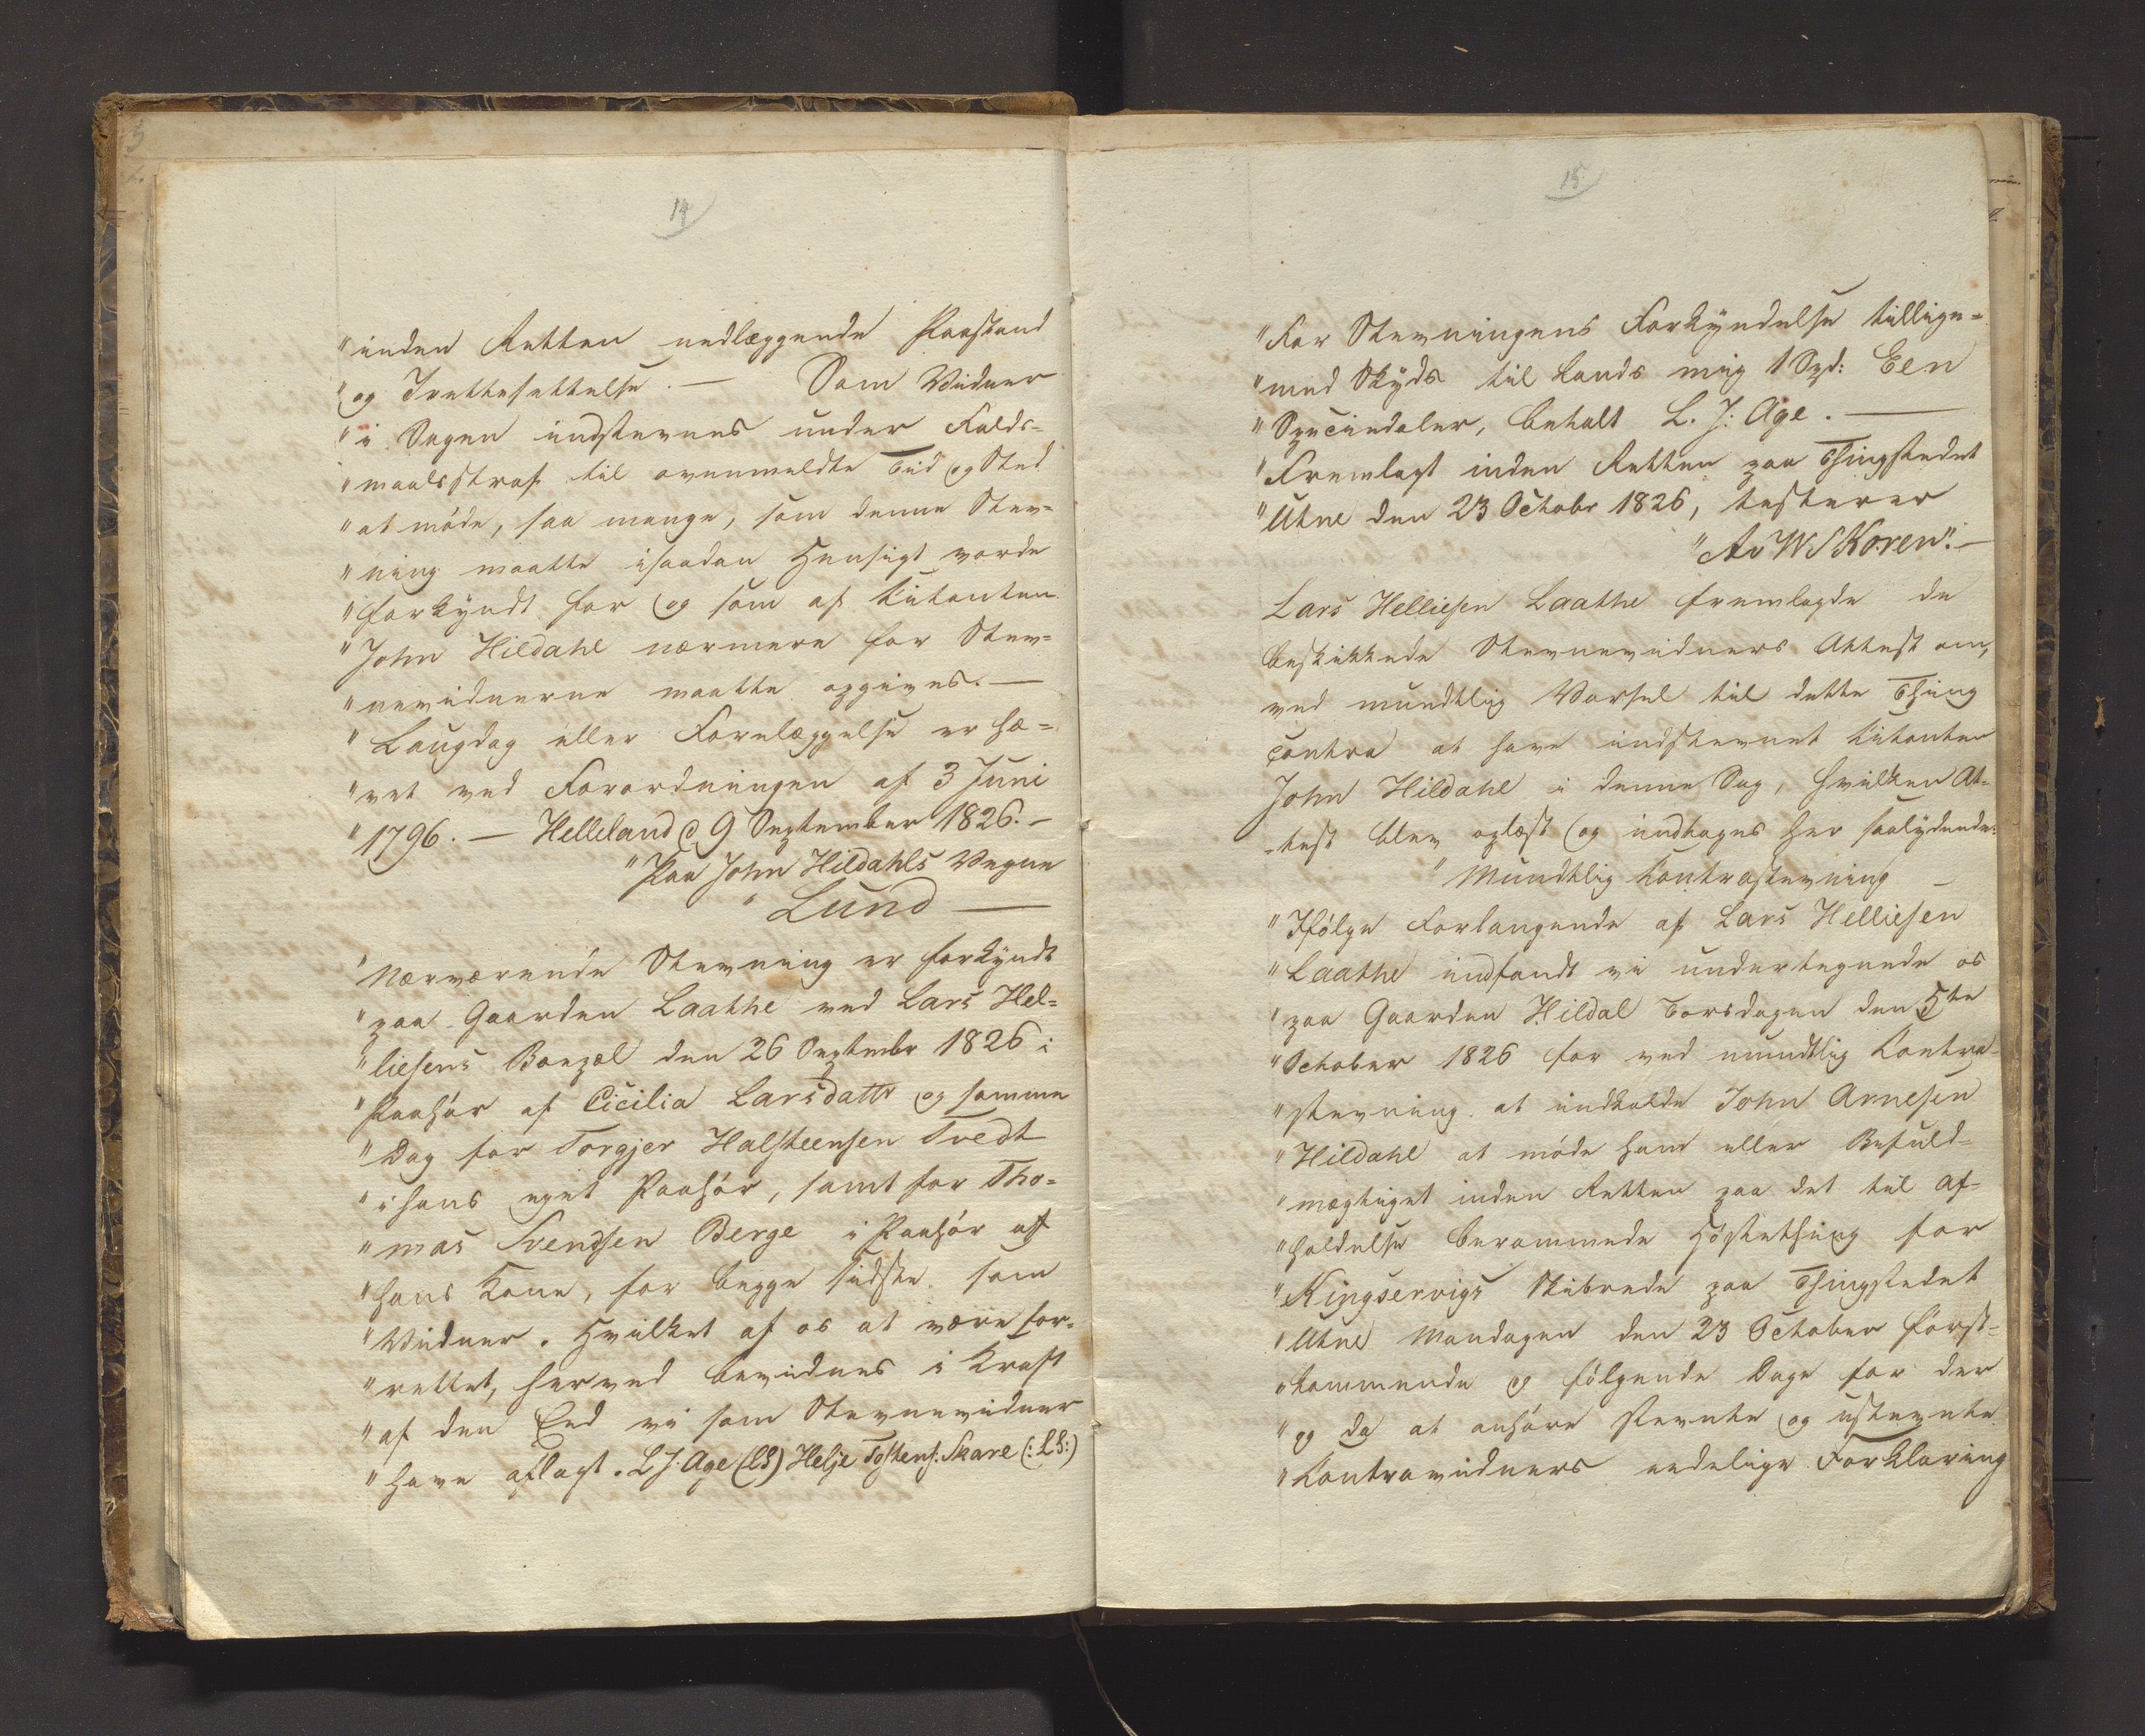 14
"inden Retten nedlæggende Paastand
"og Irettesættelse. — Som Vidner
"i Sagen indstevnes under Falds-
"maalsstraf til ovenmeldte Tid og Sted
"at møde, saa mange, som denne Stev-
"ning maatte isaadan Hensigt vorde
"forkyndt for og som af Citanten
"John Hildahl nærmere for Stev-
"nevidnerne maatte opgives. —
"Laugdag eller Forelæggelse er hæ-
"vet ved Forordningen af 3 Juni
"1796. — Helleland d 9 September 1826. —
"Paa John Hildahls Vegne
"Lund —
"Nærværende Stevning er forkyndt
"paa Gaarden Laathe ved Lars Hel-
"liesens Boepæl den 26 Septembr 1826 i
"Paahør af Cicilia Larsdattr og samme
"Dag for Torgjer Halsteensen Tvedt
"i hans eget Paahør, samt for Tho-
"mas Svendsen Berge i Paahør af
"hans Kone, for begge sidste som
"Vidner. Hvilket af os at være for-
"rettet, herved bevidnes i Kraft
"af den Eed vi som Stevnevidner
"have aflagt. L J: Age (LS) Helje Tostens: Skare (:LS:)
15
"For Stevningens Forkyndelse tillige-
"med Skyds til Lands mig 1 Spd: Een
"Speciedaler, betalt L. J: Age. —
"Fremlagt inden Retten paa Thingstedet
"Utne den 23 Octobr 1826, testerer
"Av W S Koren". —
Lars Helliesen Laathe fremlagde de
beskikkede Stevnevidners Attest om,
ved mundtlig Varsel til dette Thing
contra at have indstevnet Citanten
John Hildahl i denne Sag, hvilken At-
-test blev oplæst og indtages her saalydende:
"Mundtlig Kontrastevning —
"Ifølge Forlangende af Lars Helliesen
"Laathe indfandt vi undertegnede os
"paa Gaarden Hildal Torsdagen den 5te
"October 1826 for ved mundtlig Kontra-
"stevning at indkalde John Arnesen
"Hildahl at møde ham eller Befuld-
"mægtiget inden Retten paa det til Af-
"holdelse berammede Høstething for
"Kingservigs Skibrede paa Thingstedet
"Utne Mandagen den 23 October først-
"kommende og følgende Dage for der
"og da at anhøre stevnte og ustevnte
"Kontravidners eedelige Forklaring